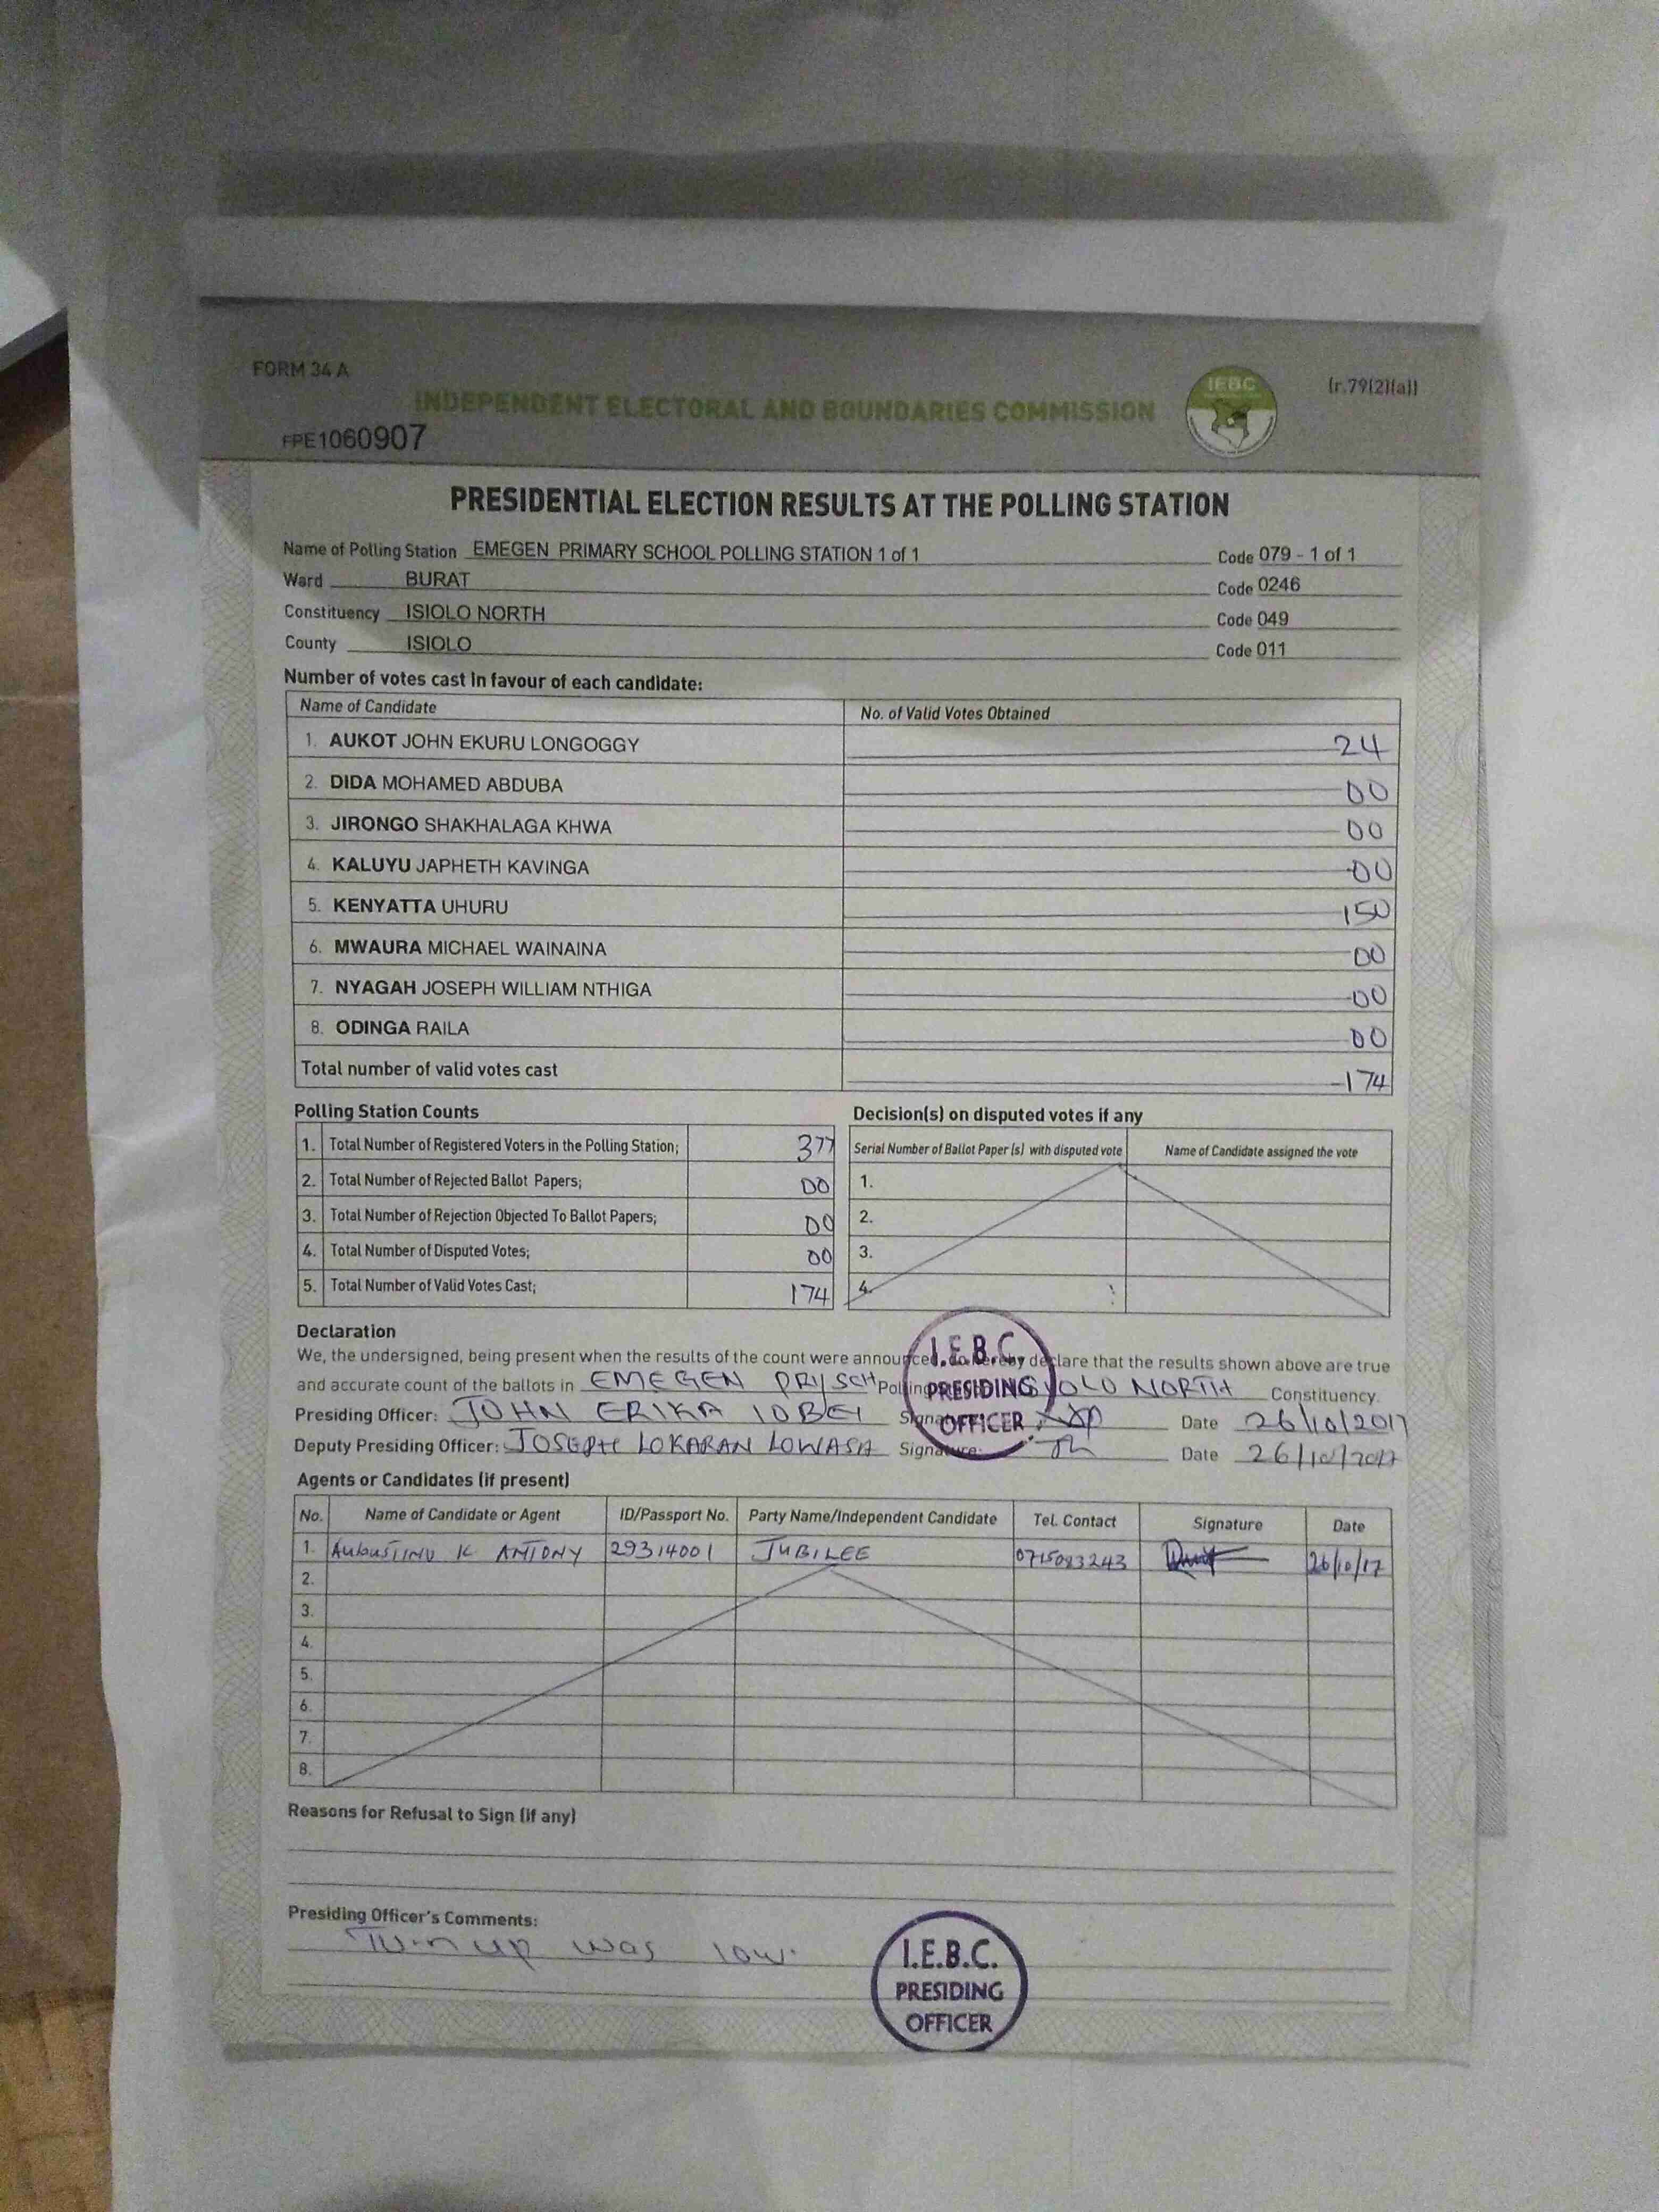 FORM 34 A
(r.79(2)(a))
INDEPENDENT ELECTORAL AND BOUNDARIES COMMISSION
IEBC
FPE1060907
PRESIDENTIAL ELECTION RESULTS AT THE POLLING STATION
Name of Polling Station EMEGEN PRIMARY SCHOOL POLLING STATION 1 of 1 Code 079 - 1 of 1
Ward BURAT Code 0246
Constituency ISIOLO NORTH Code 049
County ISIOLO Code 011
Number of votes cast in favour of each candidate:
Name of Candidate No. of Valid Votes Obtained
1. AUKOT JOHN EKURU LONGOGGY 24
2. DIDA MOHAMED ABDUBA 00
3. JIRONGO SHAKHALAGA KHWA 00
4. KALUYU JAPHETH KAVINGA 00
5. KENYATTA UHURU 150
6. MWAURA MICHAEL WAINAINA 00
7. NYAGAH JOSEPH WILLIAM NTHIGA 00
8. ODINGA RAILA 00
Total number of valid votes cast 174
Polling Station Counts
1. Total Number of Registered Voters in the Polling Station; 377
2. Total Number of Rejected Ballot Papers; 00
3. Total Number of Rejection Objected To Ballot Papers; 00
4. Total Number of Disputed Votes; 00
5. Total Number of Valid Votes Cast; 174
Decision(s) on disputed votes if any
Serial Number of Ballot Paper (s) with disputed vote Name of Candidate assigned the vote
1.
2.
3.
4.
Declaration
We, the undersigned, being present when the results of the count were announced, do hereby declare that the results shown above are true
and accurate count of the ballots in EMEGEN PRY SCH Polling NORTH Constituency.
Presiding Officer: JOHN ERIKA Signature: Date 26/10/2017
Deputy Presiding Officer: JOSEPH LOKARAN LOWASA Signature: Date 26/10/2017
I.E.B.C.
PRESIDING
OFFICER
Agents or Candidates (if present)
No. Name of Candidate or Agent ID/Passport No. Party Name/Independent Candidate Tel. Contact Signature Date
1. ANTONY 29314001 JUBILEE 0715083243 26/10/17
2.
3.
4.
5.
6.
7.
8.
Reasons for Refusal to Sign (if any)
Presiding Officer's Comments:
Turn up was low.
I.E.B.C.
PRESIDING
OFFICER